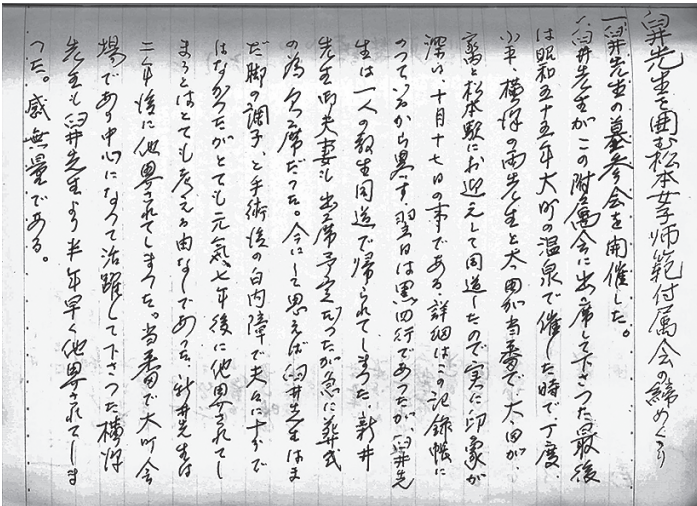 臼井先生を囲む松本女子師範付属会の締めくくり
一、臼井先生の墓参会を開催した。
八、臼井先生がこの附属会に出席して下さった最後
は昭和五十五年大町の温泉で催した時で丁度、
小平、横沢の両先生と太田が当番で、太田が、
豊高と松本駅にお迎えして同道したので実に印象が
深い、十月十七日の事である、詳細はこの記録帳に
のっているから略す。翌日は黒四行であったが、臼井先
生は一人の教生同道で帰られてしまった、新井
先生御夫妻も出席予定だったが急に葬式
の為欠席だった。今にして思えば臼井先生はま
だ脚の調子、と手術後の白内障で夫々に十分で
はなかったがとても元気、七年後に他界されてし
まうとはとても考える由なしであった、新井先生は
二年後に他界されてしまった。当番で大町会
場であり中心になって活躍して下さった横沢
先生も臼井先生より半年早く他界されてしま
った。感無量である。